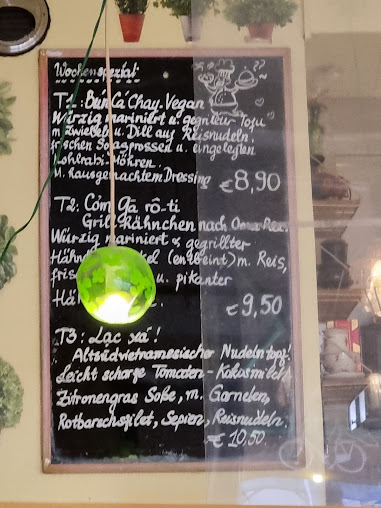 Wochenspezial
T1: Bún Cá Chay Vegan
Würzig mariniert u. gegrillter Tofu
m. Zwiebeln u. Dill auf Reisnudeln,
frischen Sojasprossen u. eingelegten
Kohlrabi-Möhren.
M. hausgemachtem Dressing €8,90
T2: Cơm gà rô-ti
Grill Hähnchen nach Omas Rez.
Würzig mariniert & gegrillter
(entbeint) m. Reis,
u. pikanter
€9,50
T3: Lạc xá!
Altsüdvietnamesischer Nudeltopf!
Leicht scharfe Tomaten-Kokosmilch
Zitronengras Soße, m. Garnelen,
Rotbarschfilet, Sepien, Reisnudeln.
€10,50